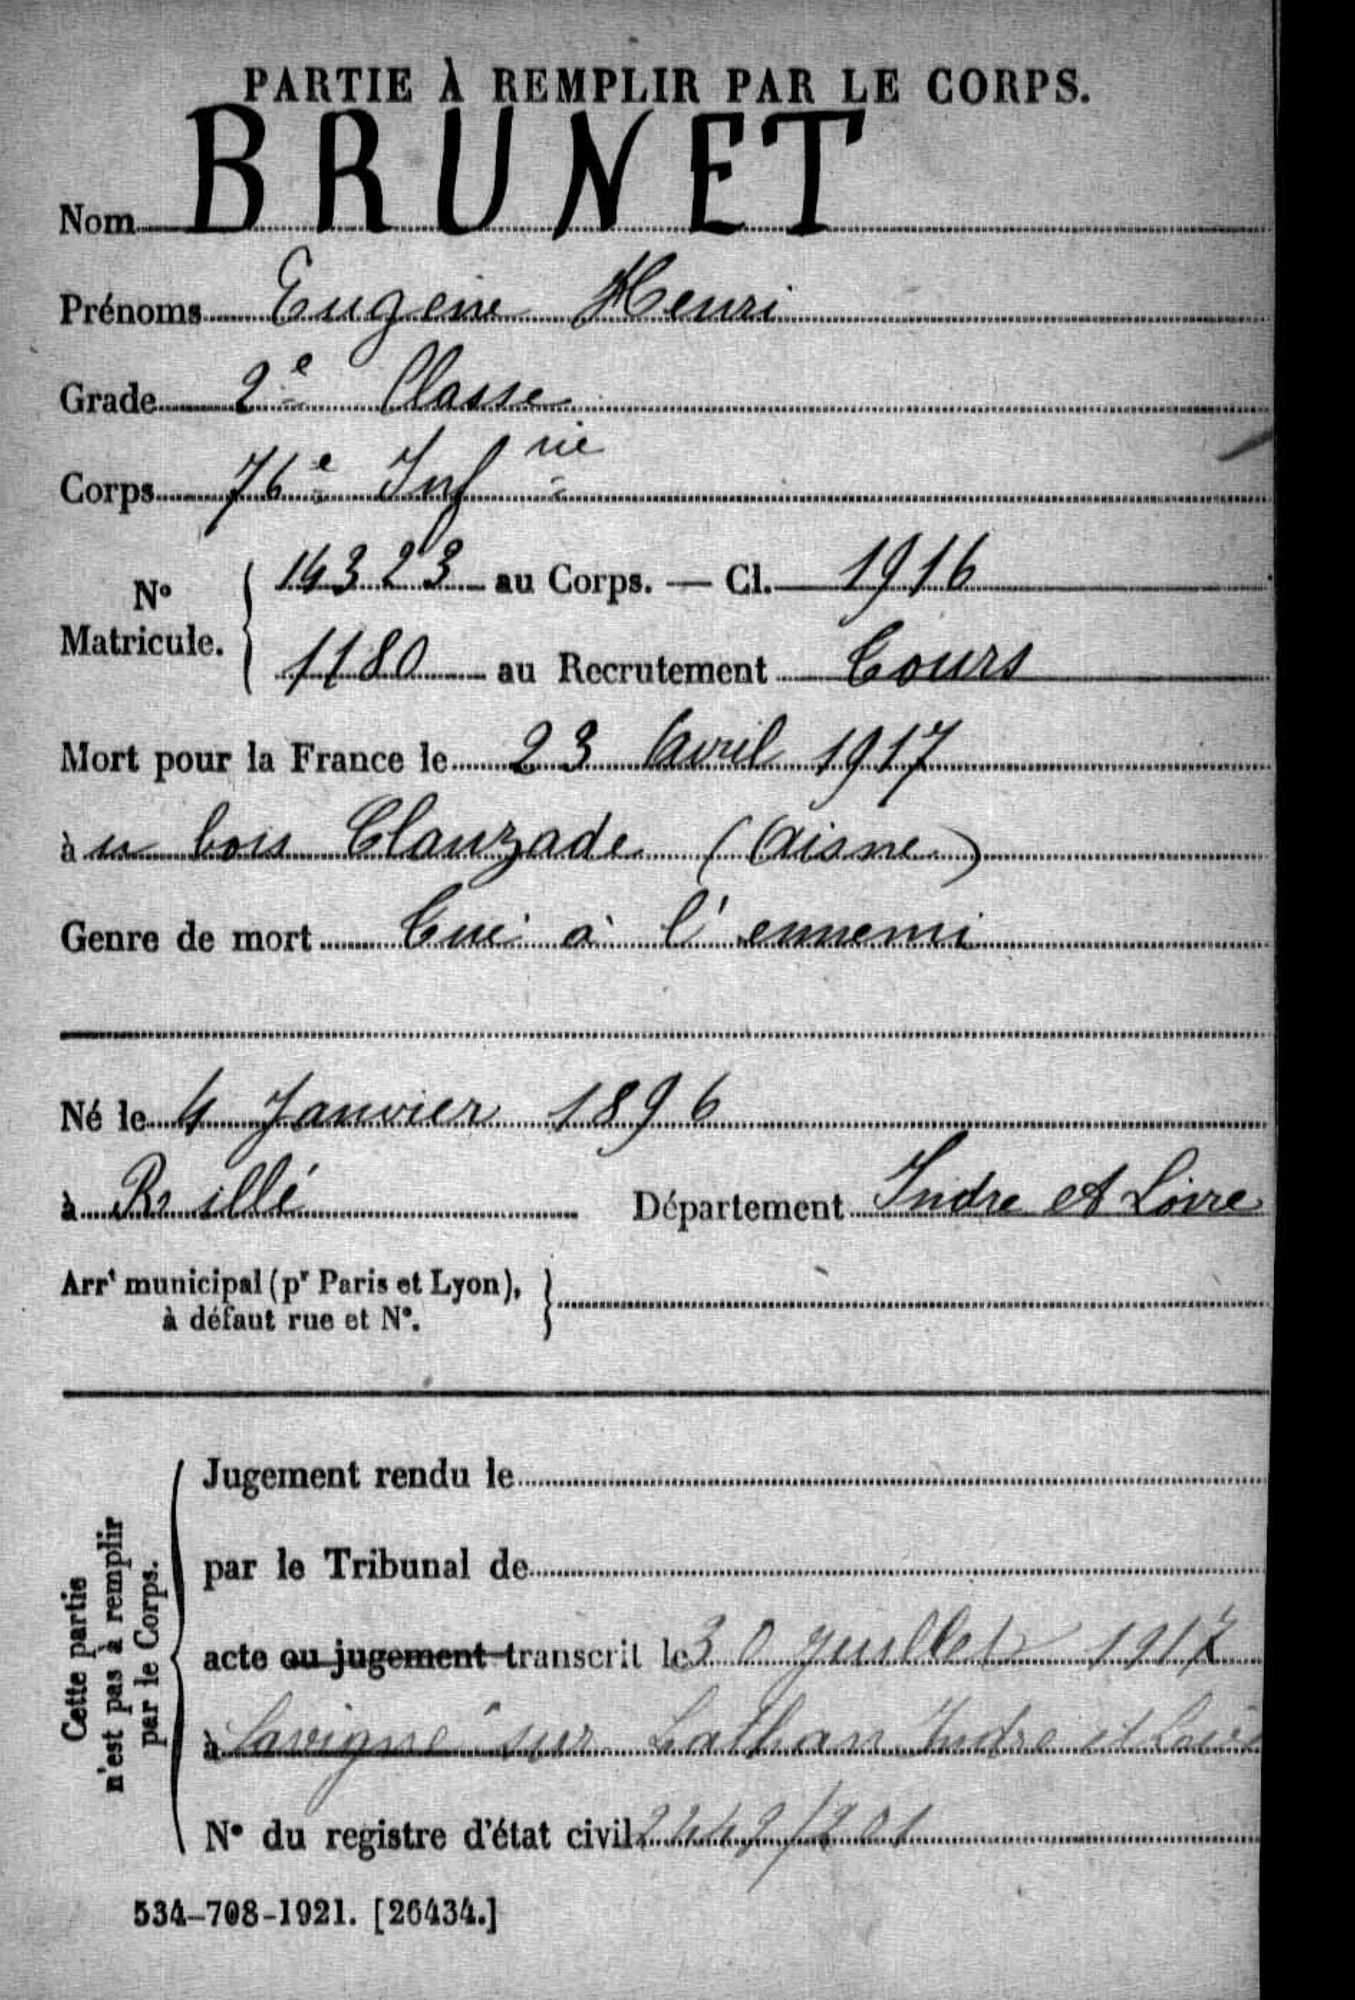 PARTIE À REMPLIR PAR LE CORPS.
Nom BRUNET
Prénoms Eugène Henri
Grade 2e Classe
Corps 76e Infrie
No Matricule. { 14323 au Corps. — Cl. 1916
1180 au Recrutement Tours
Mort pour la France le 23 Avril 1917
à u bois Clauzade (Aisne)
Genre de mort Tué à l'ennemi
Né le 4 Janvier 1896
à Rillé Département Indre et Loire
Arrt municipal (pr Paris et Lyon),
à défaut rue et No.
Cette partie
n'est pas à remplir
par le Corps.
Jugement rendu le
par le Tribunal de
acte ou jugement transcrit le 30 Juillet 1917
à Savigné sur Lathan Indre et Loire
No du registre d'état civil
534-708-1921. [26434.]